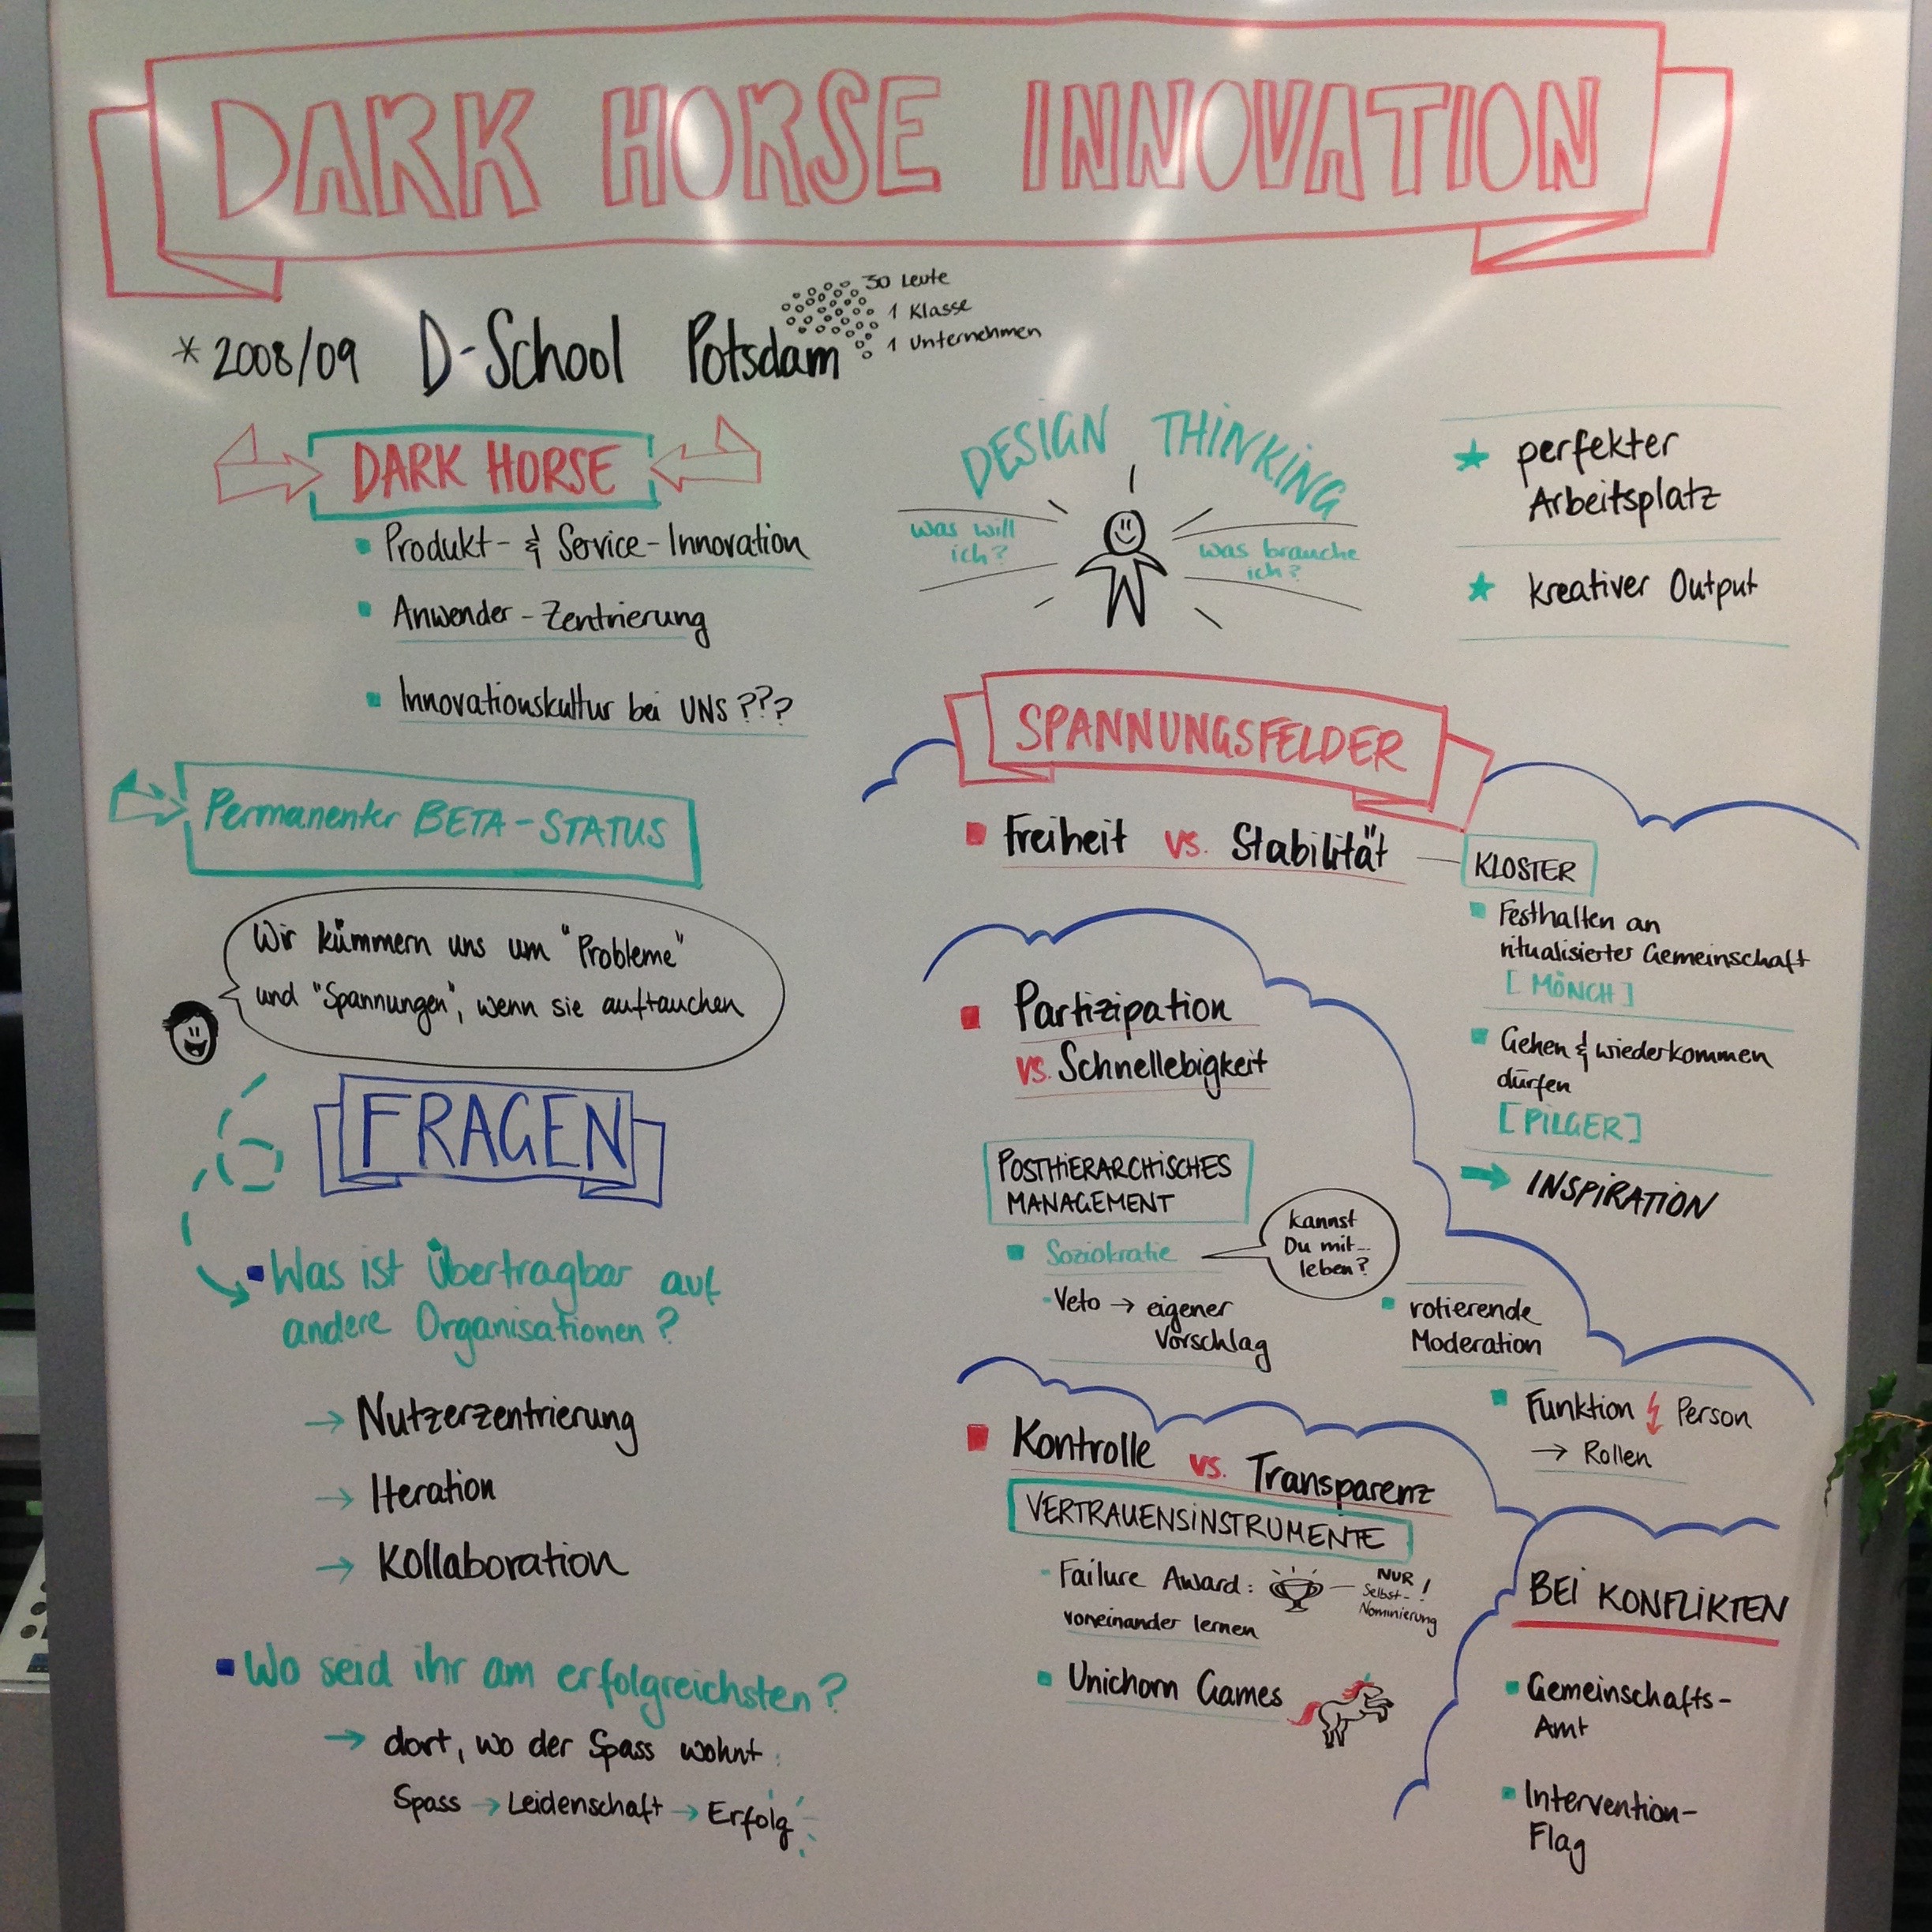 DARK HORSE INNOVATION
30 Leute
1 Klasse
1 Unternehmen
*2008/09 D-School Potsdam
DARK HORSE
Produkt- & Service-Innovation
Anwender-Zentrierung
Innovationskultur bei UNS???
DESIGN THINKING
was will
ich?
was brauche
ich?
perfekter
Arbeitsplatz
kreativer Output
Permanenter BETA-STATUS
Wir kümmern uns um "Probleme"
und "Spannungen", wenn sie auftauchen
FRAGEN
Was ist Übertragbar auf
andere Organisationen?
→ Nutzerzentrierung
→ Iteration
→ Kollaboration
Wo seid ihr am erfolgreichsten?
→ dort, wo der Spass wohnt
Spass → Leidenschaft → Erfolg
SPANNUNGSFELDER
Freiheit vs. Stabilität
KLOSTER
Festhalten an
ritualisierter Gemeinschaft
[MÖNCH]
Gehen & wiederkommen
dürfen
[PILGER]
→ INSPIRATION
Partizipation
vs. Schnellebigkeit
POSTHIERARCHISCHES
MANAGEMENT
Soziokratie
kannst
Du mit...
leben?
-Veto → eigener
Vorschlag
rotierende
Moderation
Funktion Person
→ Rollen
Kontrolle vs. Transparenz
VERTRAUENSINSTRUMENTE
- Failure Award:
NUR!
Selbst-
Nominierung
voneinander lernen
Unichorn Games
BEI KONFLIKTEN
Gemeinschafts-
Amt
Intervention-
Flag